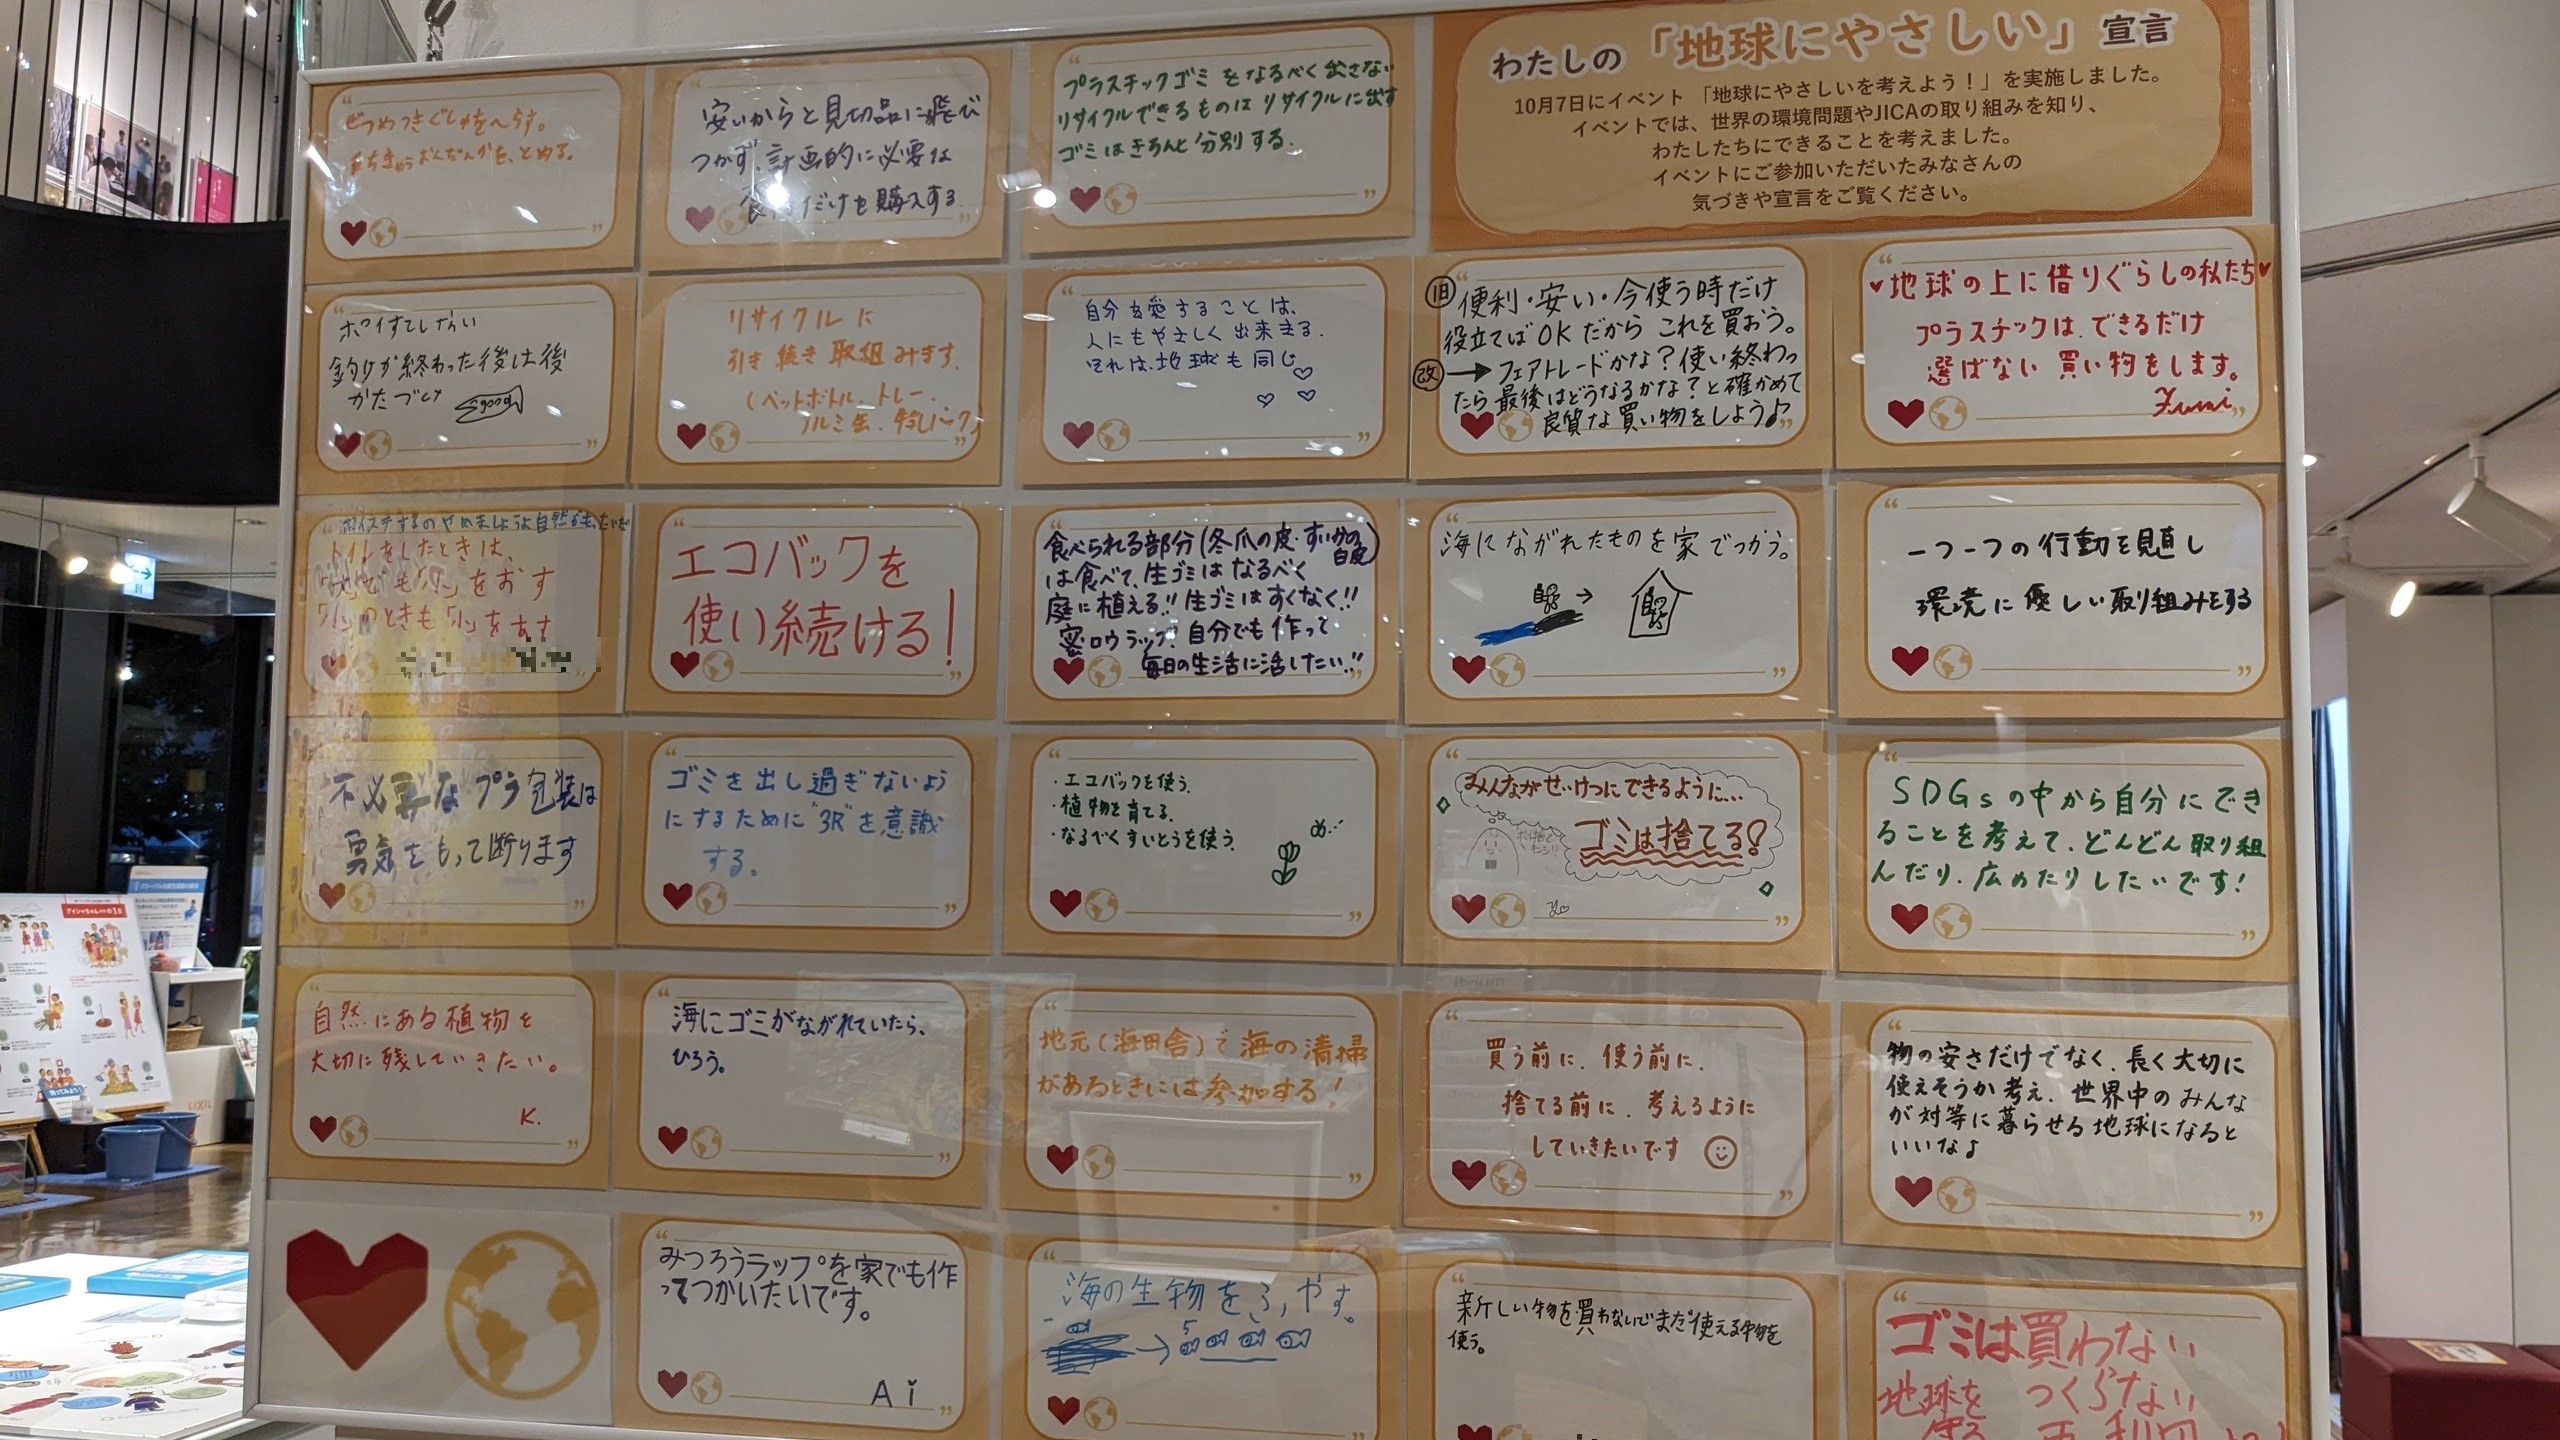 わたしの「地球にやさしい」宣言
10月7日にイベント「地球にやさしいを考えよう！」を実施しました。
イベントでは、世界の環境問題やJICAの取り組みを知り、
わたしたちにできることを考えました。
イベントにご参加いただいたみなさんの
気づきや宣言をご覧ください。
ぜつめつきぐしゅをへらす。
ちきゅうおんだんかを、とめる。
安いからと見切品に飛び
つかず、計画的に必要な
食品だけを購入する
プラスチックゴミをなるべく出さない
リサイクルできるものはリサイクルに出す
ゴミはきちんと分別する.
ポイすてしない
釣りが終わった後は後
かたづけ
good
リサイクルに
引き続き取組みます.
(ペットボトル.トレー.
アルミ缶.牛乳パック)
自分を愛することは、
人にもやさしく出来きる.
それは.地球も同じ
旧 便利・安い・今使う時だけ
役立てばOKだからこれを買おう。
改→フェアトレードかな？使い終わっ
たら最後はどうなるかな？と確かめて
良質な買い物をしよう♪
♥地球の上に借りぐらしの私たち♥
プラスチックは.できるだけ
選ばない買い物をします。
Fumi
ポイステするのやめましょう自然がも
トイレをしたときは、
エコバックを
使い続ける!
食べられる部分(冬瓜の皮・すいかの
白皮)
は食べて、生ゴミはなるべく
庭に植える!!生ゴミはすくなく!!
蜜ロウラップ!自分でも作って
毎日の生活に活したい!!
海にながれたものを家でつかう。
一つ一つの行動を見直し
環境に優しい取り組みをする
不必要なプラ包装は
勇気をもって断ります
ゴミを出し過ぎないよう
にするために"3R"を意識
する。
・エコバックを使う.
・植物を育てる.
・なるべくすいとうを使う.
みんながせいけつにできるように...
ゴミは捨てる!
SDGsの中から自分にでき
ることを考えて、どんどん取り組
んだり、広めたりしたいです!
自然にある植物を
大切に残していきたい。
K.
海にゴミがながれていたら、
ひろう。
地元(海田舎)で海の清掃
があるときには参加する!
買う前に、使う前に、
捨てる前に、考えるように
していきたいです
物の安さだけでなく、長く大切に
使えそうか考え、世界中のみんな
が対等に暮らせる地球になると
いいな♪
みつろうラップを家でも作
ってつかいたいです。
Ai
海の生物をふやす。
新しい物を買わないでまだ使える物を
使う。
ゴミは買わない
つくらない
地球を
守る